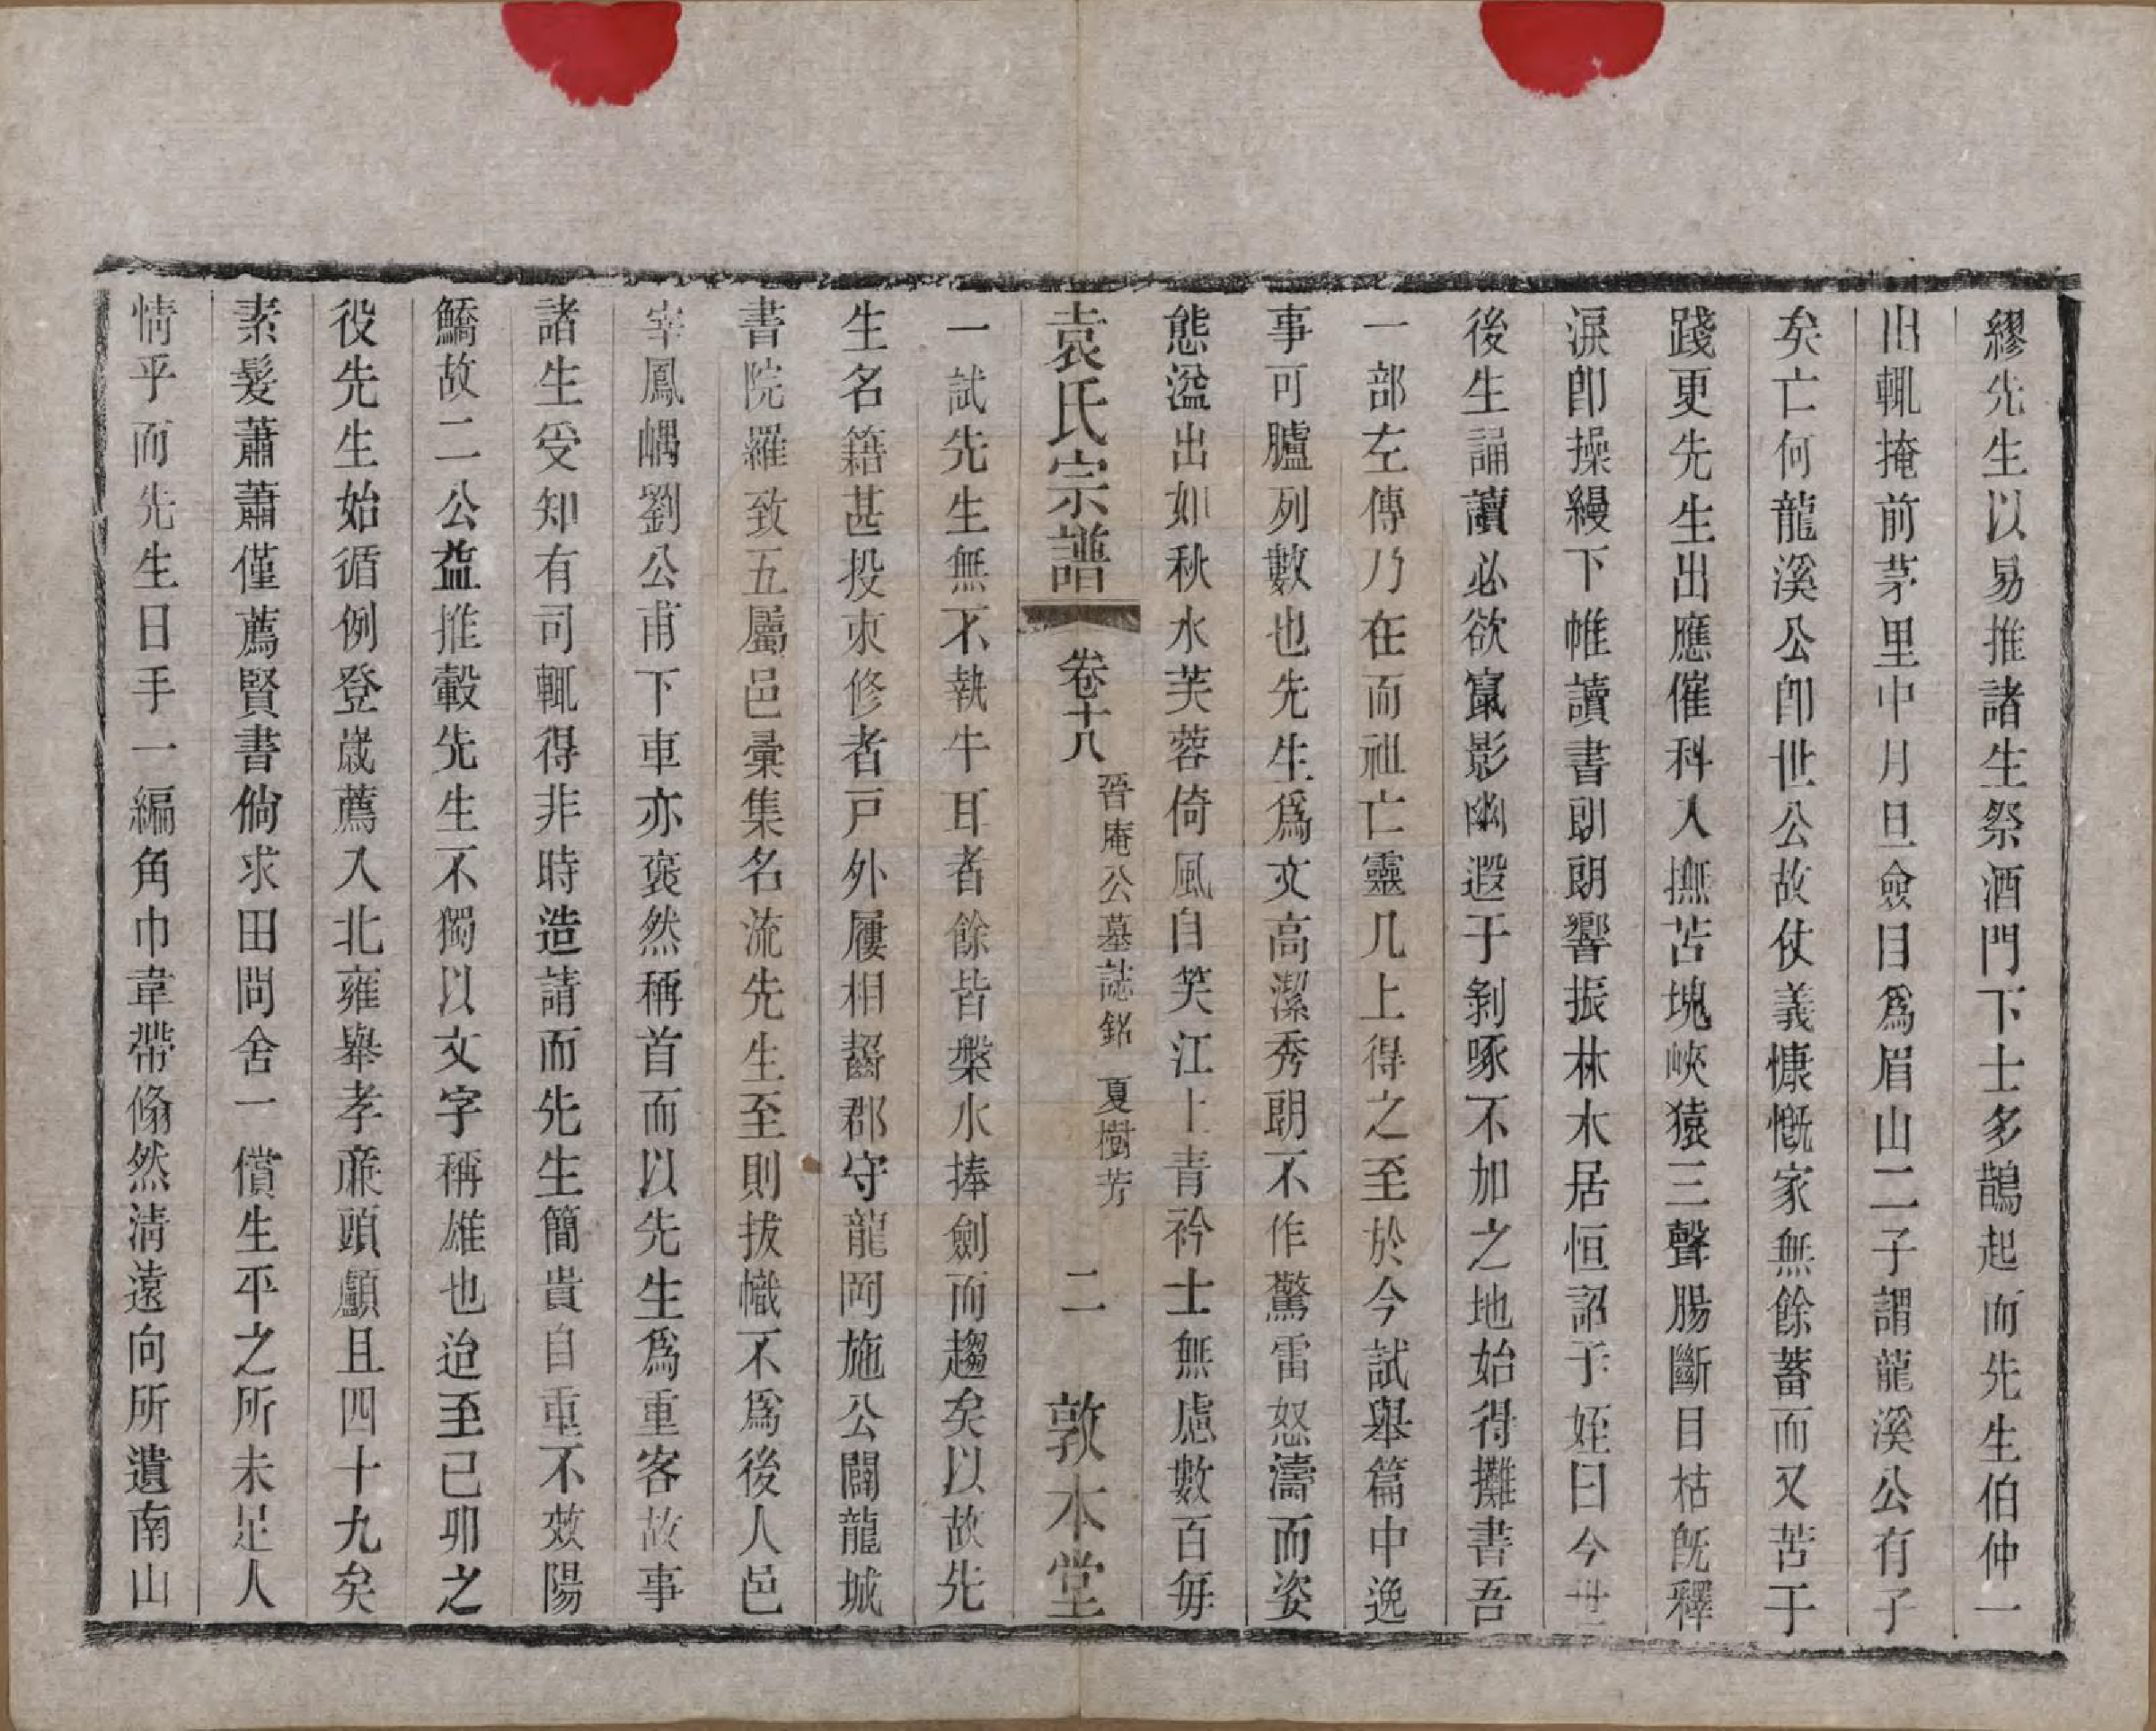 繆先生以易推諸生祭酒門下士多鵲起而先生伯仲一
旧輒掩前茅里中月旦僉目爲眉山二子謂龍溪公有子
矣亡何龍溪公卽世公故仗義慷慨家無餘蓄而又苦于
踐更先生出應催科入撫苫塊峽猿三聲腸斷目枯旣釋
淚卽操縵下帷讀書朗朗響振林木居恒詔子姪曰今世
後生誦讀必欲竄影幽遐于剝啄不加之地始得攤書吾
一部左傳乃在而祖亡靈几上得之至於今試舉篇中逸
事可臚列數也先生爲文高潔秀朗不作驚雷怒濤而姿
態溢出如秋水芙蓉倚風自笑江上青衿士無慮數百每
袁氏宗譜 卷十八 晉庵公墓誌銘 夏樹芳 二 敦本堂
一試先生無不執牛耳者餘皆槃水捧劍而趨矣以故先
生名籍甚投束修者戸外屨相齧郡守龍岡施公闢龍城
書院羅致五屬邑彙集名流先生至則拔幟不爲後人邑
宰鳳嵎劉公甫下車亦褎然稱首而以先生爲重客故事
諸生受知有司輒得非時造請而先生簡貴自重不效陽
鱎故二公益推轂先生不獨以文字稱雄也迨至己卯之
役先生始循例登歲薦入北雍舉孝廉頭顱且四十九矣
素髮蕭蕭僅薦賢書倘求田問舍一償生平之所未足人
情乎而先生日手一編角巾韋帶翛然淸遠向所遺南山